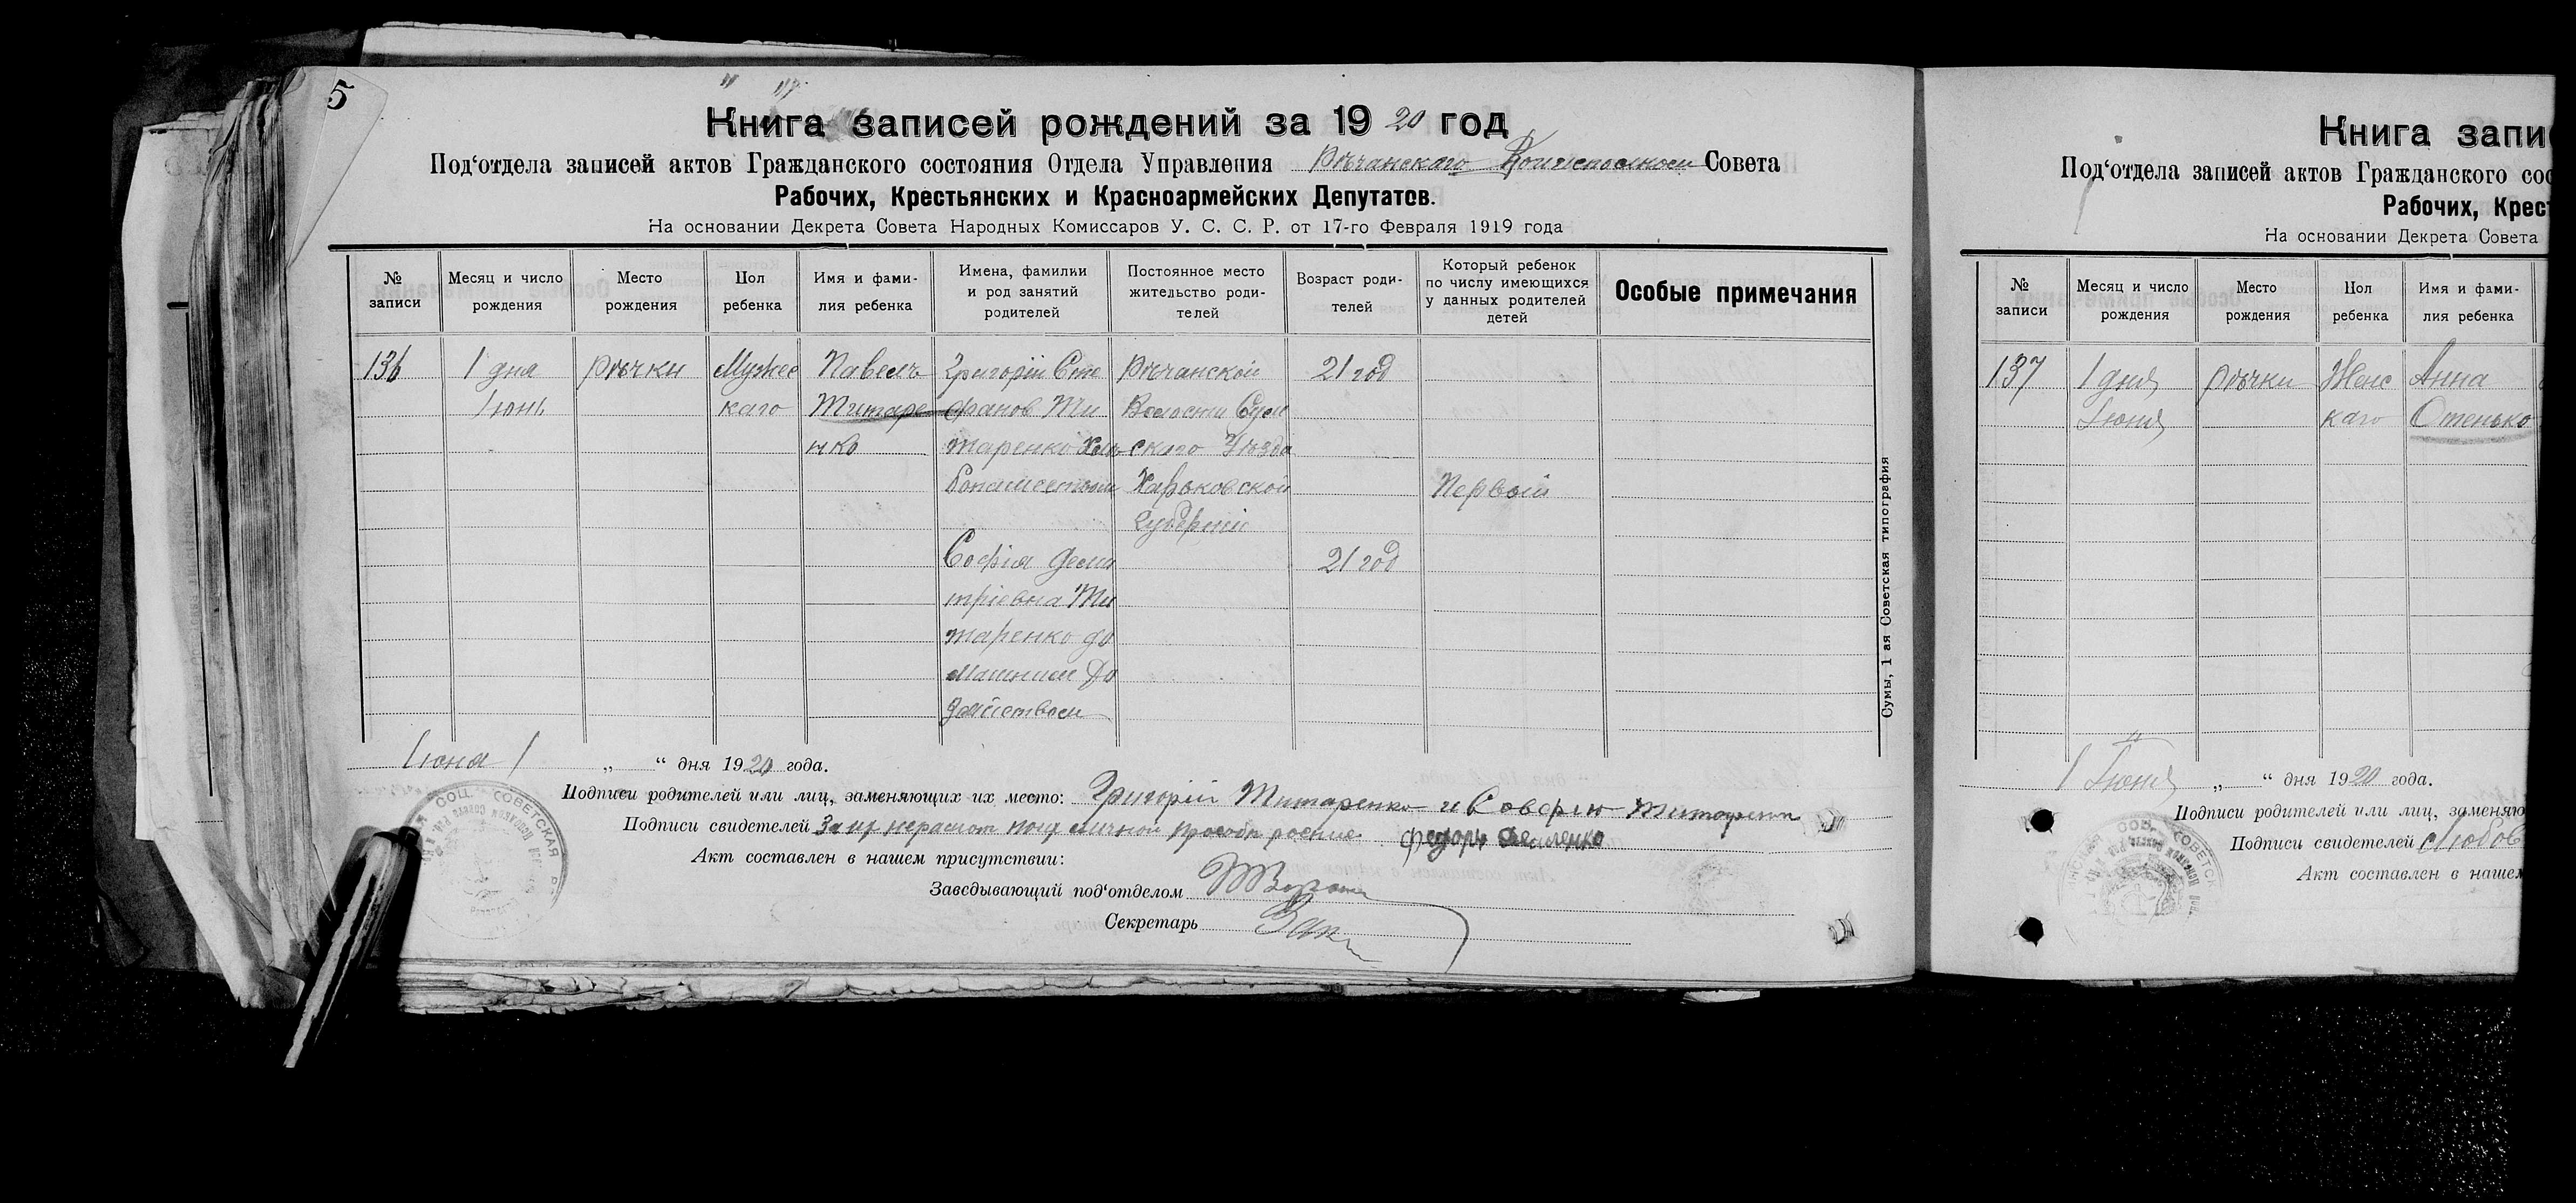 5
Книга записей рождений за 1920 год
Под‘отдела записей актов Гражданского состояния Отдела Управления Рѣчанскаго Совета
Рабочих, Крестьянских и Красноармейских Депутатов.
На основании Декрета Совета Народных Комиссаров У. С. С. Р. от 17-го Февраля 1919 года
№ записи
Месяц и число рождения
Место рождения
Пол ребенка
Имя и фамилия ребенка
Имена, фамилии и род занятий родителей
Постоянное место жительство родителей
Возраст родителей
Который ребенок по числу имеющихся у данных родителей детей
Особые примечания
136 1 дня Рѣчки Мужес Павелъ Григорій Сте Рѣчанской 21 год
Іюнь каго Титаре фанов Ти Волости Сум
нко таренко Хле скаго Уѣзда
бопашеством Харьковской Первый
Губерніи
Софія Дми 21 год
тріевна Ти
таренко до
машним хо
зяйством
Сумы, 1 ая Советская типография
Іюня 1 „ “ дня 1920 года.
Подписи родителей или лиц, заменяющих их место: Григорій Титаренко и Софію Титаренко
Подписи свидетелей За их неграмот личной просьбѣ Федоръ
Акт составлен в нашем присутствии:
Заведывающий под‘отделом
Секретарь
Книга запи
Под‘отдела записей актов Гражданского сос
Рабочих, Крест
На основании Декрета Совета
№ записи
Месяц и число рождения
Место рождения
Пол ребенка
Имя и фамилия ребенка
137 1 дня Рѣчки Женс Анна
Іюня каго Отенько
1 Іюня „ “ дня 1920 года.
Подписи родителей или лиц, заменяю
Подписи свидетелей Любов
Акт составлен в нашем